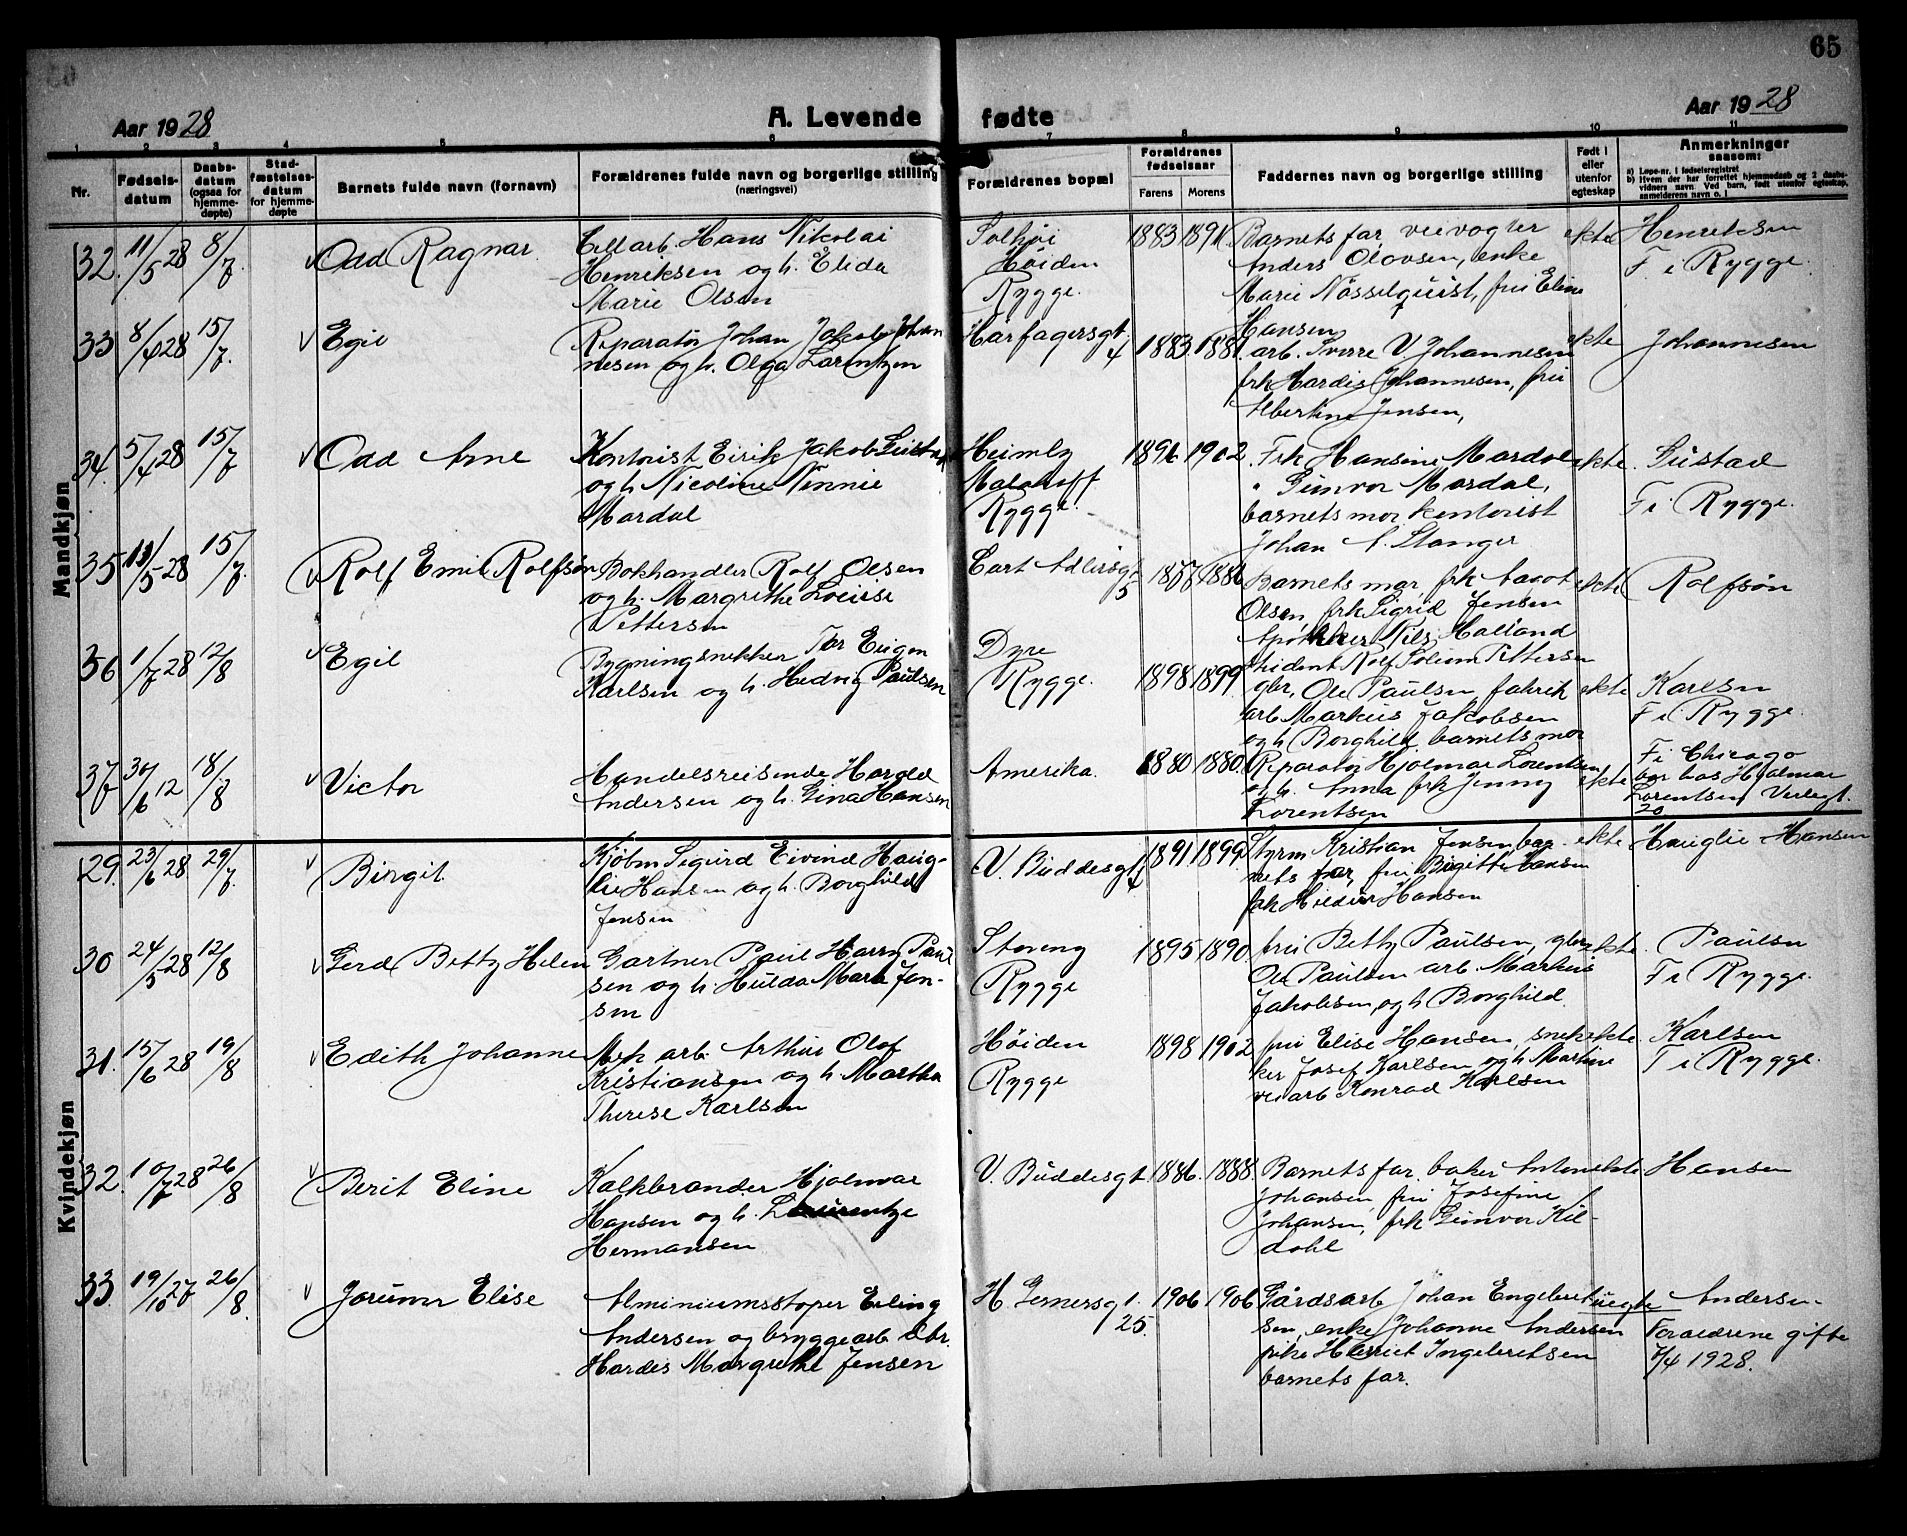 65
Aar 1928
A. Levende fødte
Aar 1928
1 2 3 4 5 6 7 8 9 10 11
Nr.
Fødsels-
datum
Daabs-
datum
(ogsaa for
hjemme-
døpte)
Stad-
fæstelses-
datum
for hjemme-
døpte
Barnets fulde navn (fornavn)
Forældrenes fulde navn og borgerlige stilling
(næringsvei)
Forældrenes bopæl
Forældrenes
fødselsaar
Farens Morens
Faddernes navn og borgerlige stilling
Født i
eller
utenfor
egteskap
Anmerkninger
saasom:
a) Løpe-nr. i fødselsregistret
b) Hvem der har forrettet hjemmedaab og 2 daabs-
vidners navn. Ved barn, født utenfor egteskap,
anmelderens navn o. l.
Mandkjøn
32. 11/5 28 8/7. Odd Ragnar
Cellarb. Hans Nikolai
Henriksen og h. Elida
Marie Olsen
Solhøi
Høiden
Rygge.
1883 1891.
Barnets far, veivogter
Anders Olovsen, enke
Marie Nässelquist, fru Eline
Hansen
ekte
Henriksen
F. i Rygge.
33 8/4 28 15/7. Egil
Reparatør Johan Jakob Johan
nesen og h. Olga Larentzen
Harfagersgt
4
1883. 1881.
arb. Sverre V. Johannesen
frk Hardis Johannesen, fru
Albertine Jensen,
ekte
Johannesen
34. 5/4 28 15/7 Odd Arne
Kontorist Eirik Jakob Gustad
og h Nicoline Ninnie
Mardal
Heimly
Malakoff
Rygge.
1896 1902
Frk Hansine Mardal
" Gunvor Mardal,
barnets mor kontorist
Johan A. Stanger
ekte
Gustad
F i Rygge.
35 11/5 28 15/7. Rolf Emil Rolfsøn
Bokhandler Rolf Olsen
og h. Margrethe Louise
Pettersen
Cort Adlersgt
5
1857 1886
Barnets mor, frk Aagot
Olsen, frk Sigrid Jensen
Apotheker Nils Halland
student Rolf Solum Pettersen
ekte
Rolfsøn
36 1/7 28 12/8 Egil
Bygningsnekker Tor Eugen
Karlsen og h. Hedvig Paulsen
Dyre
Rygge.
1898 1899
gbr, Ole Paulsen, fabrik
arb Markus Jakobsen
og h Borghild, barnets mor
ekte
Karlsen
F. i Rygge.
37 30/6 12 18/8 Victor
Handelsreisende Harald
Andersen og h. Gina Hansen
Amerika.
1880 1880.
Reparatør Hjalmar Lorentsen
og h. Anna frk Jenny
Lorentsen
ekte
F i Chicago
bor hos Hjalmar
Lorentsen Verlegt.
20
Kvindekjøn
29. 23/6 28 29/7. Birgit
Kjøbm Sigurd Eivind Haug-
lie Hansen og h. Borghild
Jensen
V. Buddesgt
4
1891 1899.
Styrm Kristian Jensen bar-
nets far, fru Birgitte Hansen
frk Hildur Hansen
ekte
Hauglie Hansen
30 24/5 28 12/8 Gerd Betty Helen
Gartner Paul Harry Paul
sen og h. Hulda Marie Jen-
sen
Støreng
Rygge
1895 1890.
fru Betty Paulsen, gbr
Ole Paulsen arb. Markus
Jakobsen, og h Borghild.
ekte
Paulsen
F i Rygge.
31. 15/6 28 19/8 Edith Johanne
Mek arb. Arthur Olaf
Kristiansen og h. Martha
Therese Karlsen
Høiden
Rygge
1898 1902
fru Elise Hansen, snek
ker Josef Karlsen og h. Martine
vei arb Konrad Karlsen
ekte
Karlsen
F i Rygge.
32. 10/7 28 26/8 Berit Eline
Kalkbrænder Hjalmar
Hansen og h. Laurentze
Hermansen
V. Buddesgt.
1886. 1888.
Barnets far. baker Anton
Johansen, fru Josefine
Johansen, frk Gunvor Kil-
dahl
ekte
Hansen
33. 19/10 27 26/8. Jorunn Elise
Alminiumsstøper Erling
Andersen og bryggearb dbr.
Hardis Margrethe Jensen
H. Gernersgt.
25.
1906 1906
Gårdsarb Johan Engebret
sen, enke Johanne Andersen
pike Harriet Ingebretsen
barnets far.
uegte
Andersen
Foraldrene gifte
7/4 1928.